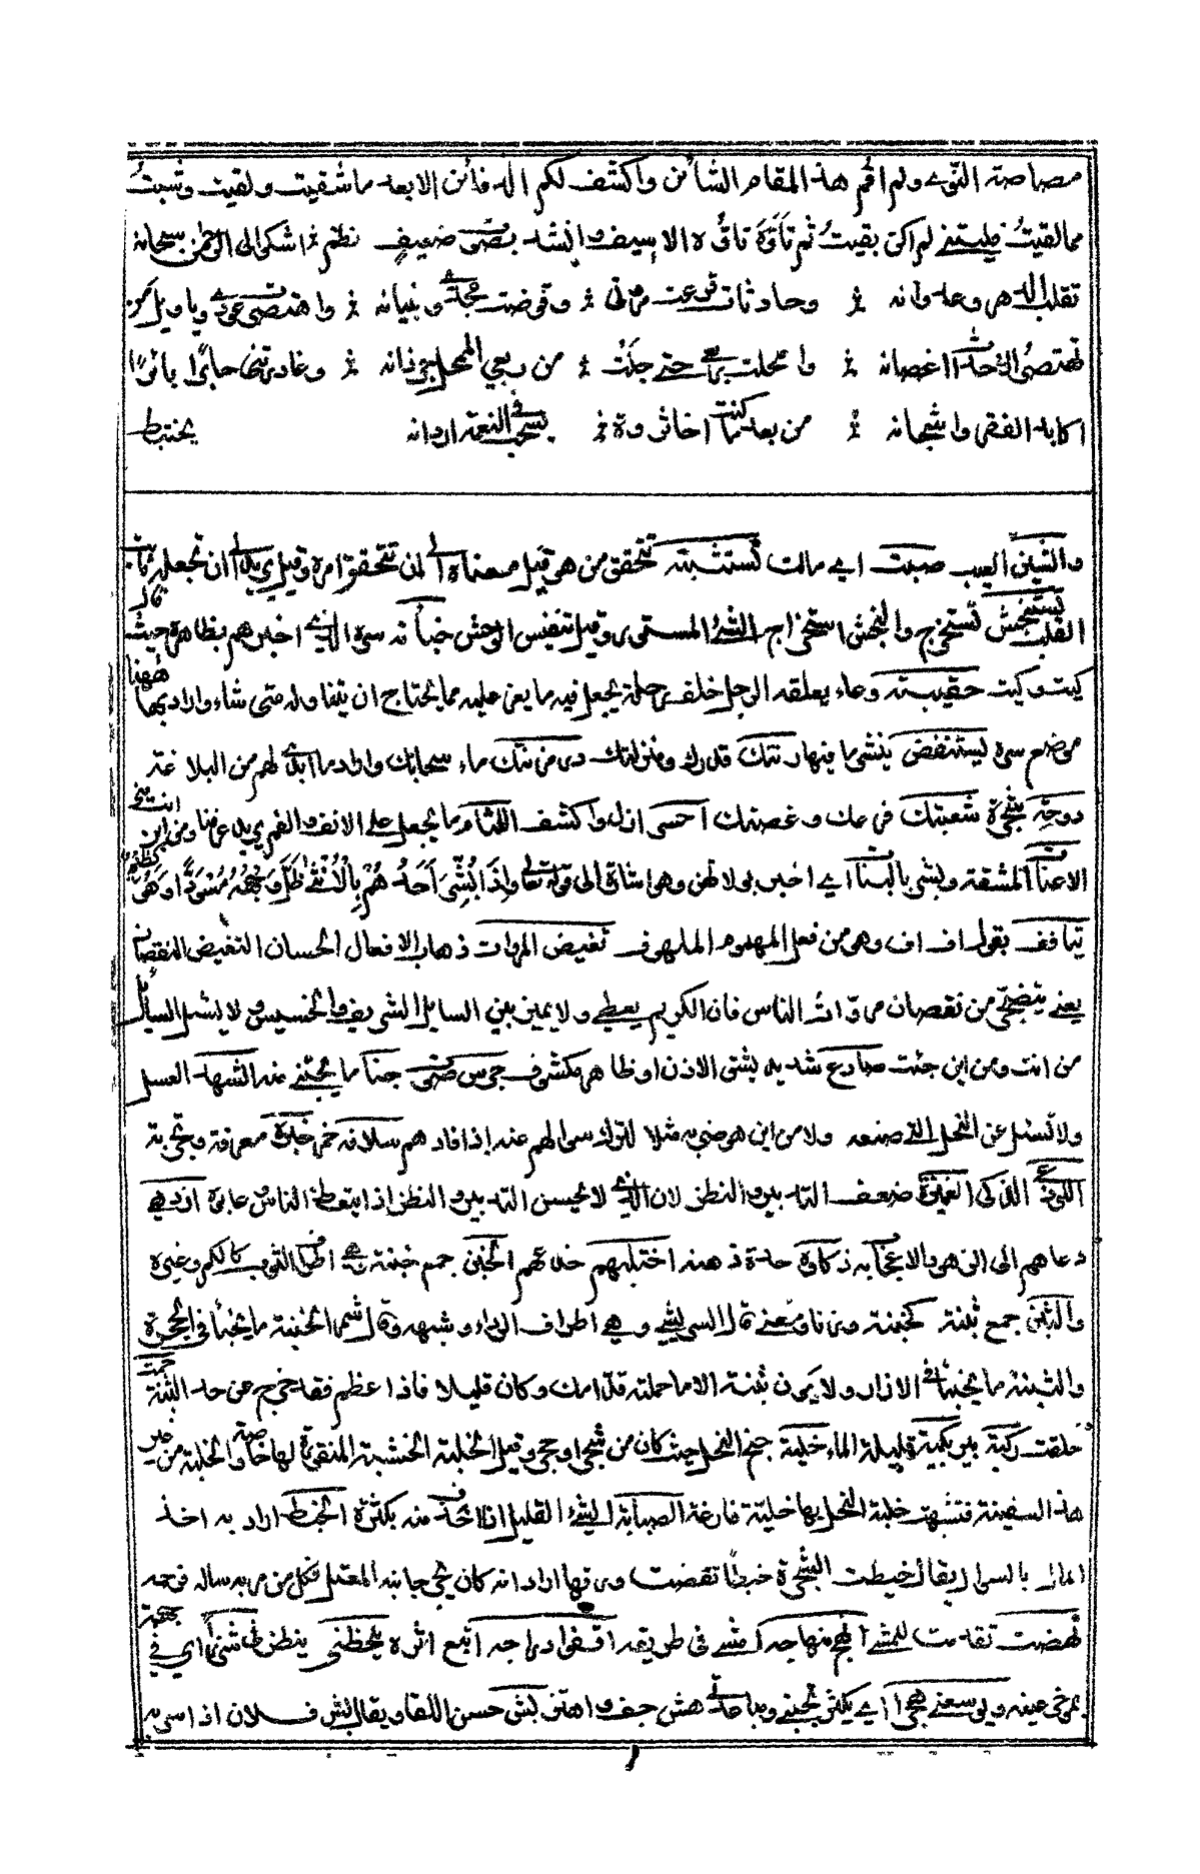 مصاصة النوى ولم اقم هذا المقام الشائن واكشف لكم الدفائن الا بعد ما شقيت ولقيت وشبت
مما لقيت فليتني لم اكن بقيت ثم تأوه تأوه الاسيف وانشد بصوت ضعيف نظم اشكو الى الرحمن سبحانه
تقلب الدهر وعدوانه وحادثات قرعت مروتي وقوضت مجدي وبنيانه واهتصرت عودي ويا ويل من
تهتصر الاحداث اغصانه وامحلت ربعي حتى جلت من ربعي الممحل جرذانه وغادرتني حائرا بائرا
اكابد الفقر واشجانه من بعد ما كنت اخا ثروة يسحب في النعمة اردانه يختبط
والشين العيب صبت اي مالت تستثبته تتحقق من هو قيل معناه الى ان تتحققوا امره وقيل يريد ان تجعله ثابت
القلب تستنجش تستخرج والنجش استخراج الشئ المستور وقيل تنفير الوحش خبأته سره الذي اخبرهم بظاهره حيث قال
كيت وكيت حقيبته وعاء يعلقه الرجل خلف رحله يجعل فيه ما يعز عليه مما يحتاج ان يتناوله متى شاء واراد بها ههنا
موضع سره يستنفض ينثر ما فيها رتبتك قدرك ومنزلتك ودر مزنتك ماء سحابك واراد ما ابداه لهم من البلاغة
دوحة شجرة شعبتك فرعك وغصنك احسر ازل واكشف اللثام ما يجعل على الانف والفم يريد عرفنا ومن اين انت
الاعنات المشقة وبشر بالبنات اي اخبر بولادتهن وهو اشارة الى قوله تعالى واذا بشر احدهم بالانثى ظل وجهه مسودا وهو كظيم
يتأفف يقول اف اف وهو من فعل المهموم الملهوف تغيض المروات ذهاب الافعال الحسان التغيض النقصان
يعني يتضجر من نقصان مروات الناس فان الكريم يعطي ولا يميز بين السايل الشريف والخسيس ولا يسئل السايل
من انت ومن اين جئت صادع شديد يشق الاذن او ظاهر مكشوف جرس صوت جناه ما يجتنى منه الشهد العسل
ولا تسئل عن النحل التي صنعه ولا من اين هو ضربه مثلا للترك سوالهم عنه اذا افادهم سلافة خمر خبرة معرفة وتجربة
اللوذعي الذكي الغميزة ضعف التدبير والنظر لان الذي لا يحسن التدبير والنظر اذا يتعظ الناس عابه ازدهى
دعاهم الى الزهو والاعجاب به ذكاؤه حدة ذهنه اختلبهم خدعهم الخبن جمع خبنة وهي اطراف الثوب كالكم وغيره
والثبن جمع ثبنة كخبنة وزنا ومعنى قال الشريشي وهي اطراف الرداء وشبهه وقال شمر الخبنة ما يخبأ في الحجزة
والثبنة ما يخبأ في الازار ولا يكون ثبنة الا ما حملته قدامك وكان قليلا فاذا عظم فقد خرج عن حد الثبنة حمت
حلقت ركية بير بكية قليلة الماء خلية جبح النحل حيث كان من شجر او حجر وقيل الخلية الخشبة المنقورة لها خاصة والخلية من غير
هذا السفينة فتشبهت خلية النحل بها خلية فارغة الصبابة الشئ القليل اذا اخذ منه بكثرة الخبط اراد به اخذ
المال بالسوال يقال خبطت الشجرة خبطا نفضت ورقها اراد انه كان يجر جانبه المعتل فكل من مر به ساله فرحمه
نهضت تقدمت للمشي انهج منهاجه امشي في طريقه اقفو ادراجه اتبع اثره يلحظني ينظر الي شزرا اي في بغضة
بمؤخر عينه ويوسعني هجرا اي يكثر تجنبي ومباعدتي هش خف واهتز بش حسن اللقا ويقال بش فلان اذا سر به